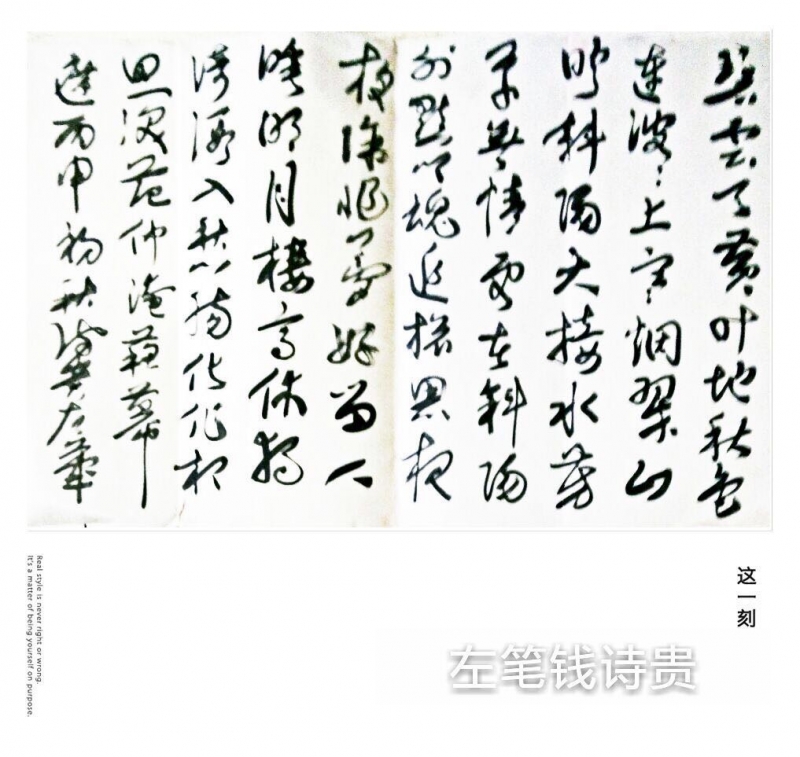 碧雲天黄叶地秋色
連波〻上寒烟翠山
映斜陽天接水芳
草無情更在斜陽
外黯乡魂追旅思夜
夜除非夢好留人
睡明月樓高休獨
倚酒入秋腸化作相
思淚范仲淹蘇幕
遮丙申初秋詩貴左筆
这一刻
左笔钱诗贵
Real style is never right or wrong.
It's a matter of being yourself on purpose.